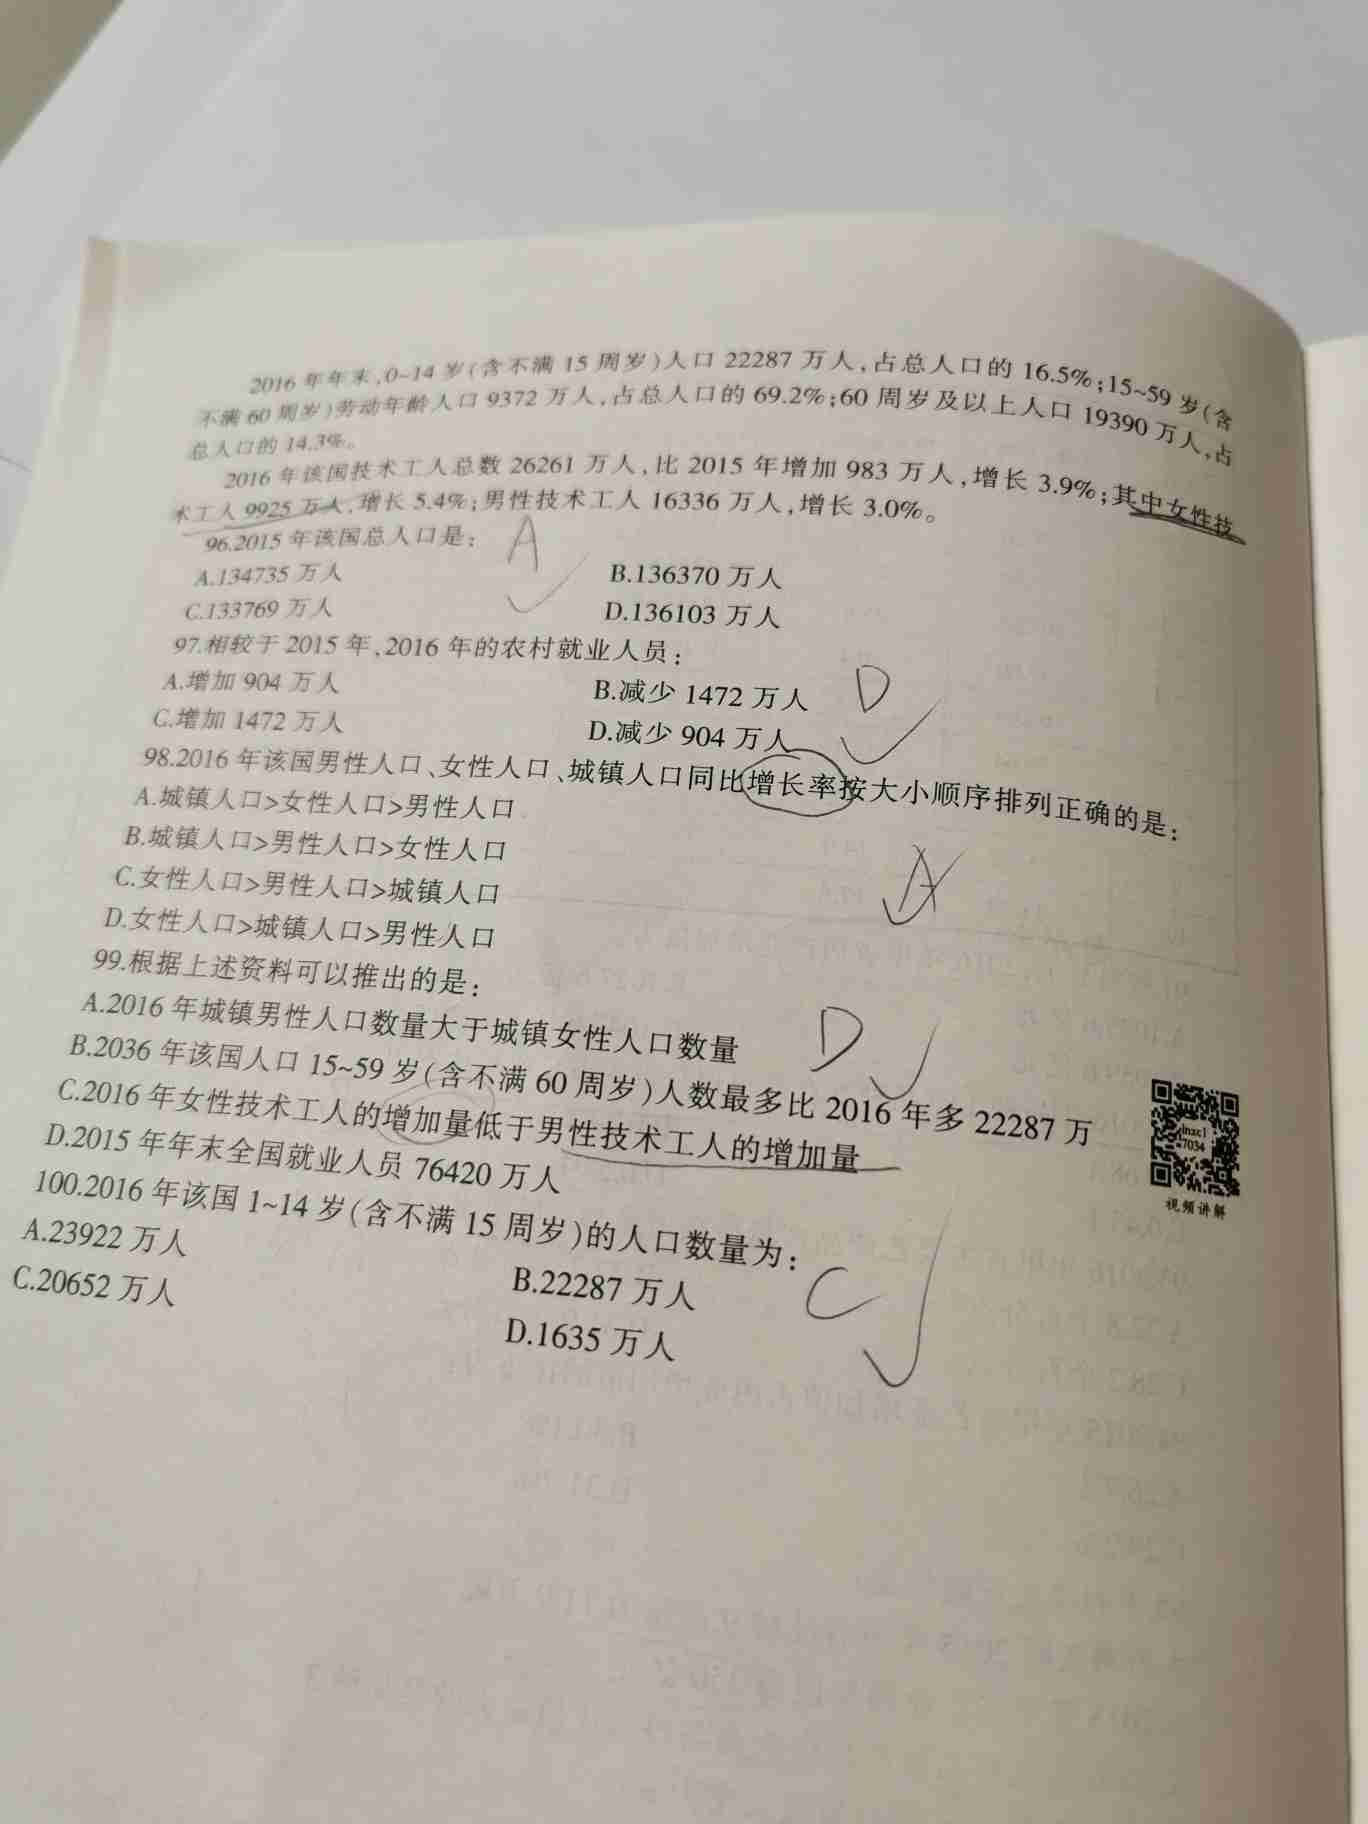 2016年年末,0~14岁(含不满15周岁)人口22287万人,占总人口的16.5%;15~59岁(含
不满60周岁)劳动年龄人口9372万人,占总人口的69.2%;60周岁及以上人口19390万人,占
总人口的14.3%。
2016年该国技术工人总数26261万人,比2015年增加983万人,增长3.9%;其中女性技
术工人9925万人,增长5.4%;男性技术工人16336万人,增长3.0%。
96.2015年该国总人口是: A
A.134735万人 B.136370万人
C.133769万人 D.136103万人
97.相较于2015年,2016年的农村就业人员:
A.增加904万人 B.减少1472万人 D
C.增加1472万人 D.减少904万人
98.2016年该国男性人口、女性人口、城镇人口同比增长率按大小顺序排列正确的是:
A.城镇人口>女性人口>男性人口
B.城镇人口>男性人口>女性人口
C.女性人口>男性人口>城镇人口 A
D.女性人口>城镇人口>男性人口
99.根据上述资料可以推出的是:
A.2016年城镇男性人口数量大于城镇女性人口数量 D
B.2036年该国人口15~59岁(含不满60周岁)人数最多比2016年多22287万
C.2016年女性技术工人的增加量低于男性技术工人的增加量
D.2015年年末全国就业人员76420万人
100.2016年该国1~14岁(含不满15周岁)的人口数量为:
A.23922万人 B.22287万人 C
C.20652万人 D.1635万人
jnxc1
7034
视频讲解